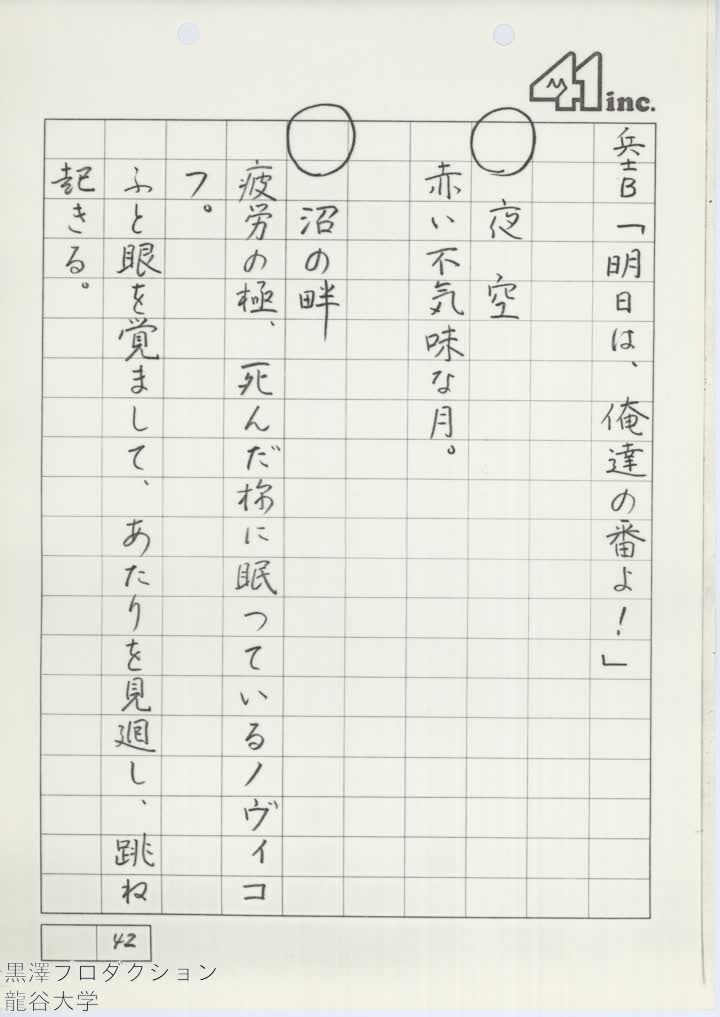 41 inc.
兵士B「明日は、俺達の番よ！」
○　夜　空
赤い不気味な月。
○　沼の畔
疲労の極、死んだ様に眠つているノヴィコ
フ。
ふと眼を覚まして、あたりを見廻し、跳ね
起きる。
42
黒澤プロダクション
龍谷大学